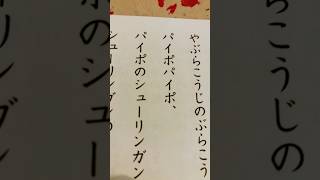 やぶらこうじのぶらこう
パイポパイポ、
パイポのシューリンガン
シューリンガンの